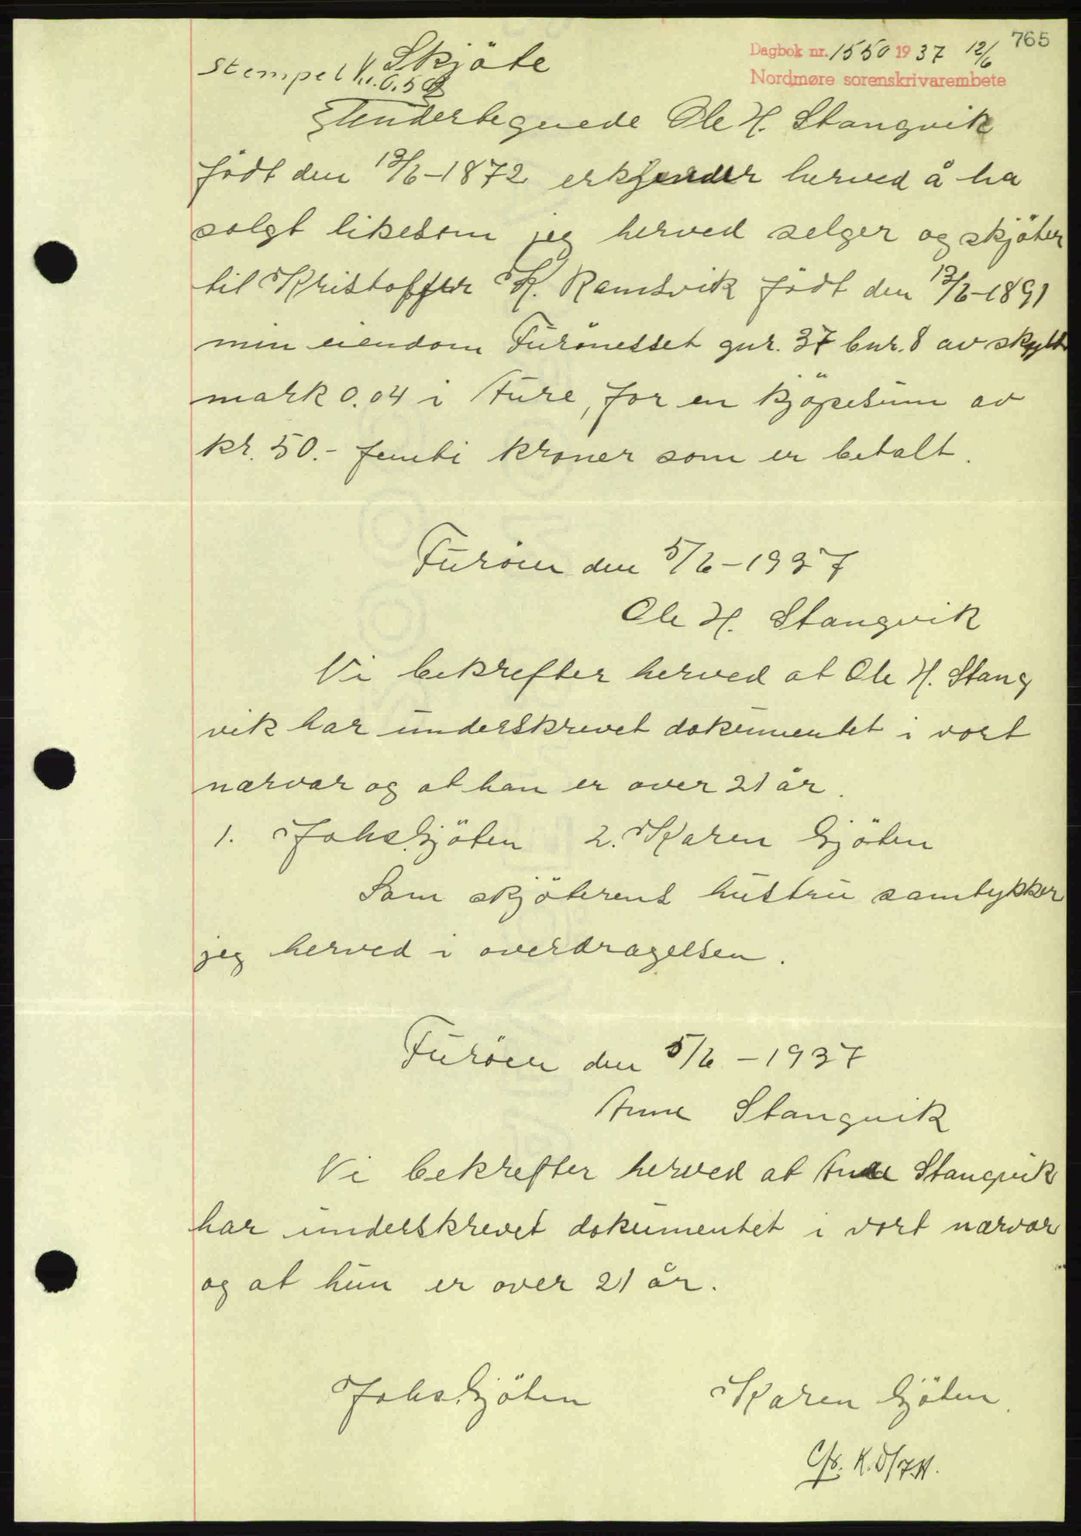 765
Dagbok nr. 1550 1937 12/6
Nordmøre sorenskrivarembete
Skjöte
Stempel kr. 0.50
Undertegnede Ole H. Stangvik
födt den 12/6-1872 erkjender herved å ha
solgt likesom jeg herved selger og skjöter
til Kristoffer K. Ramsvik födt den 12/6-1891
min eiendom Furönesset gnr. 37 bnr. 8 av skyld
mark 0.04 i Aure, for en kjöpesum av
kr. 50.- femti kroner som er betalt.
Furöen den 5/6-1937
Ole H. Stangvik
Vi bekrefter herved at Ole H. Stang
vik har underskrevet dokumentet i vort
nærvær og at han er over 21 år.
1. Johs Gjöten 2. Karen Gjöten
Som skjöterens hustru samtykker
jeg herved i overdragelsen.
Furöen den 5/6-1937
Anne Stangvik
Vi bekrefter herved at Anne Stangvik
har underskrevet dokumentet i vort nærvær
og at hun er over 21 år.
Johs. Gjöten Karen Gjöten.